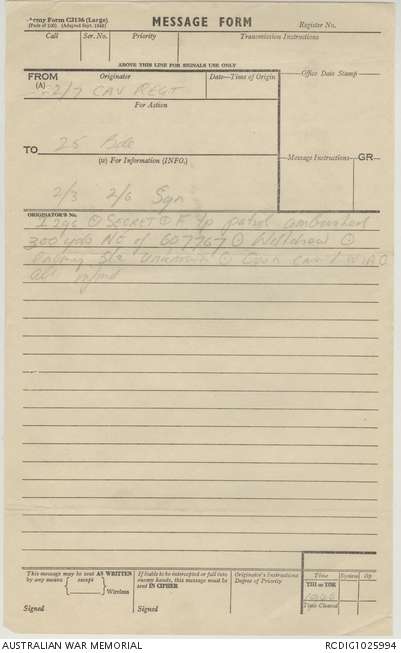 Army Form C2136 (Large)
(Pads of 100) (Adapted Sept. 1942)
MESSAGE FORM
Register No.
Call Ser. No. Priority Transmission Instructions
ABOVE THIS LINE FOR SIGNALS USE ONLY
FROM Originator Date—Time of Origin Office Date Stamp
(A) 2/7 CAV REGT
For Action
TO 25 Bde
(W) For Information (INFO.) Message Instructions GR
2/3 2/6 Sqn
ORIGINATOR'S No.
SECRET F Tp patrol ambushed
300 yds NE of 607767 Withdrew
enemy Str unknown Own cas 1 WIA
all infmd
This message may be sent AS WRITTEN
by any means except
Wireless
If liable to be intercepted or fall into
enemy hands, this message must be
sent IN CIPHER
Originator's Instructions
Degree of Priority
Time System Op
THI or TOR
Time Cleared
Signed Signed
AUSTRALIAN WAR MEMORIAL RCDIG1025994